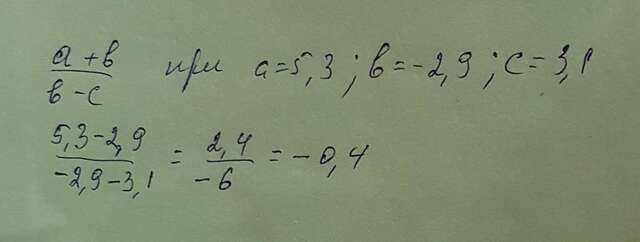 (a+в)/(в-c) при a=5,3; в=-2,9; c=3,1
(5,3-2,9)/(-2,9-3,1) = 2,4/-6 = -0,4